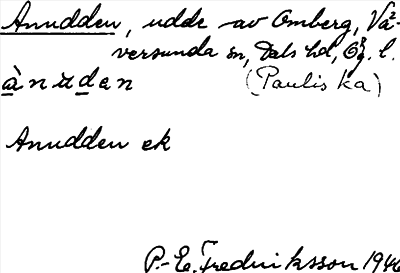 Anudden, udde av Omberg, Vä-
versunda sn, Dals hd, Ög. l.
ànuden (Paulis ka)
Anudden ek
P.-E. Fredriksson 1946